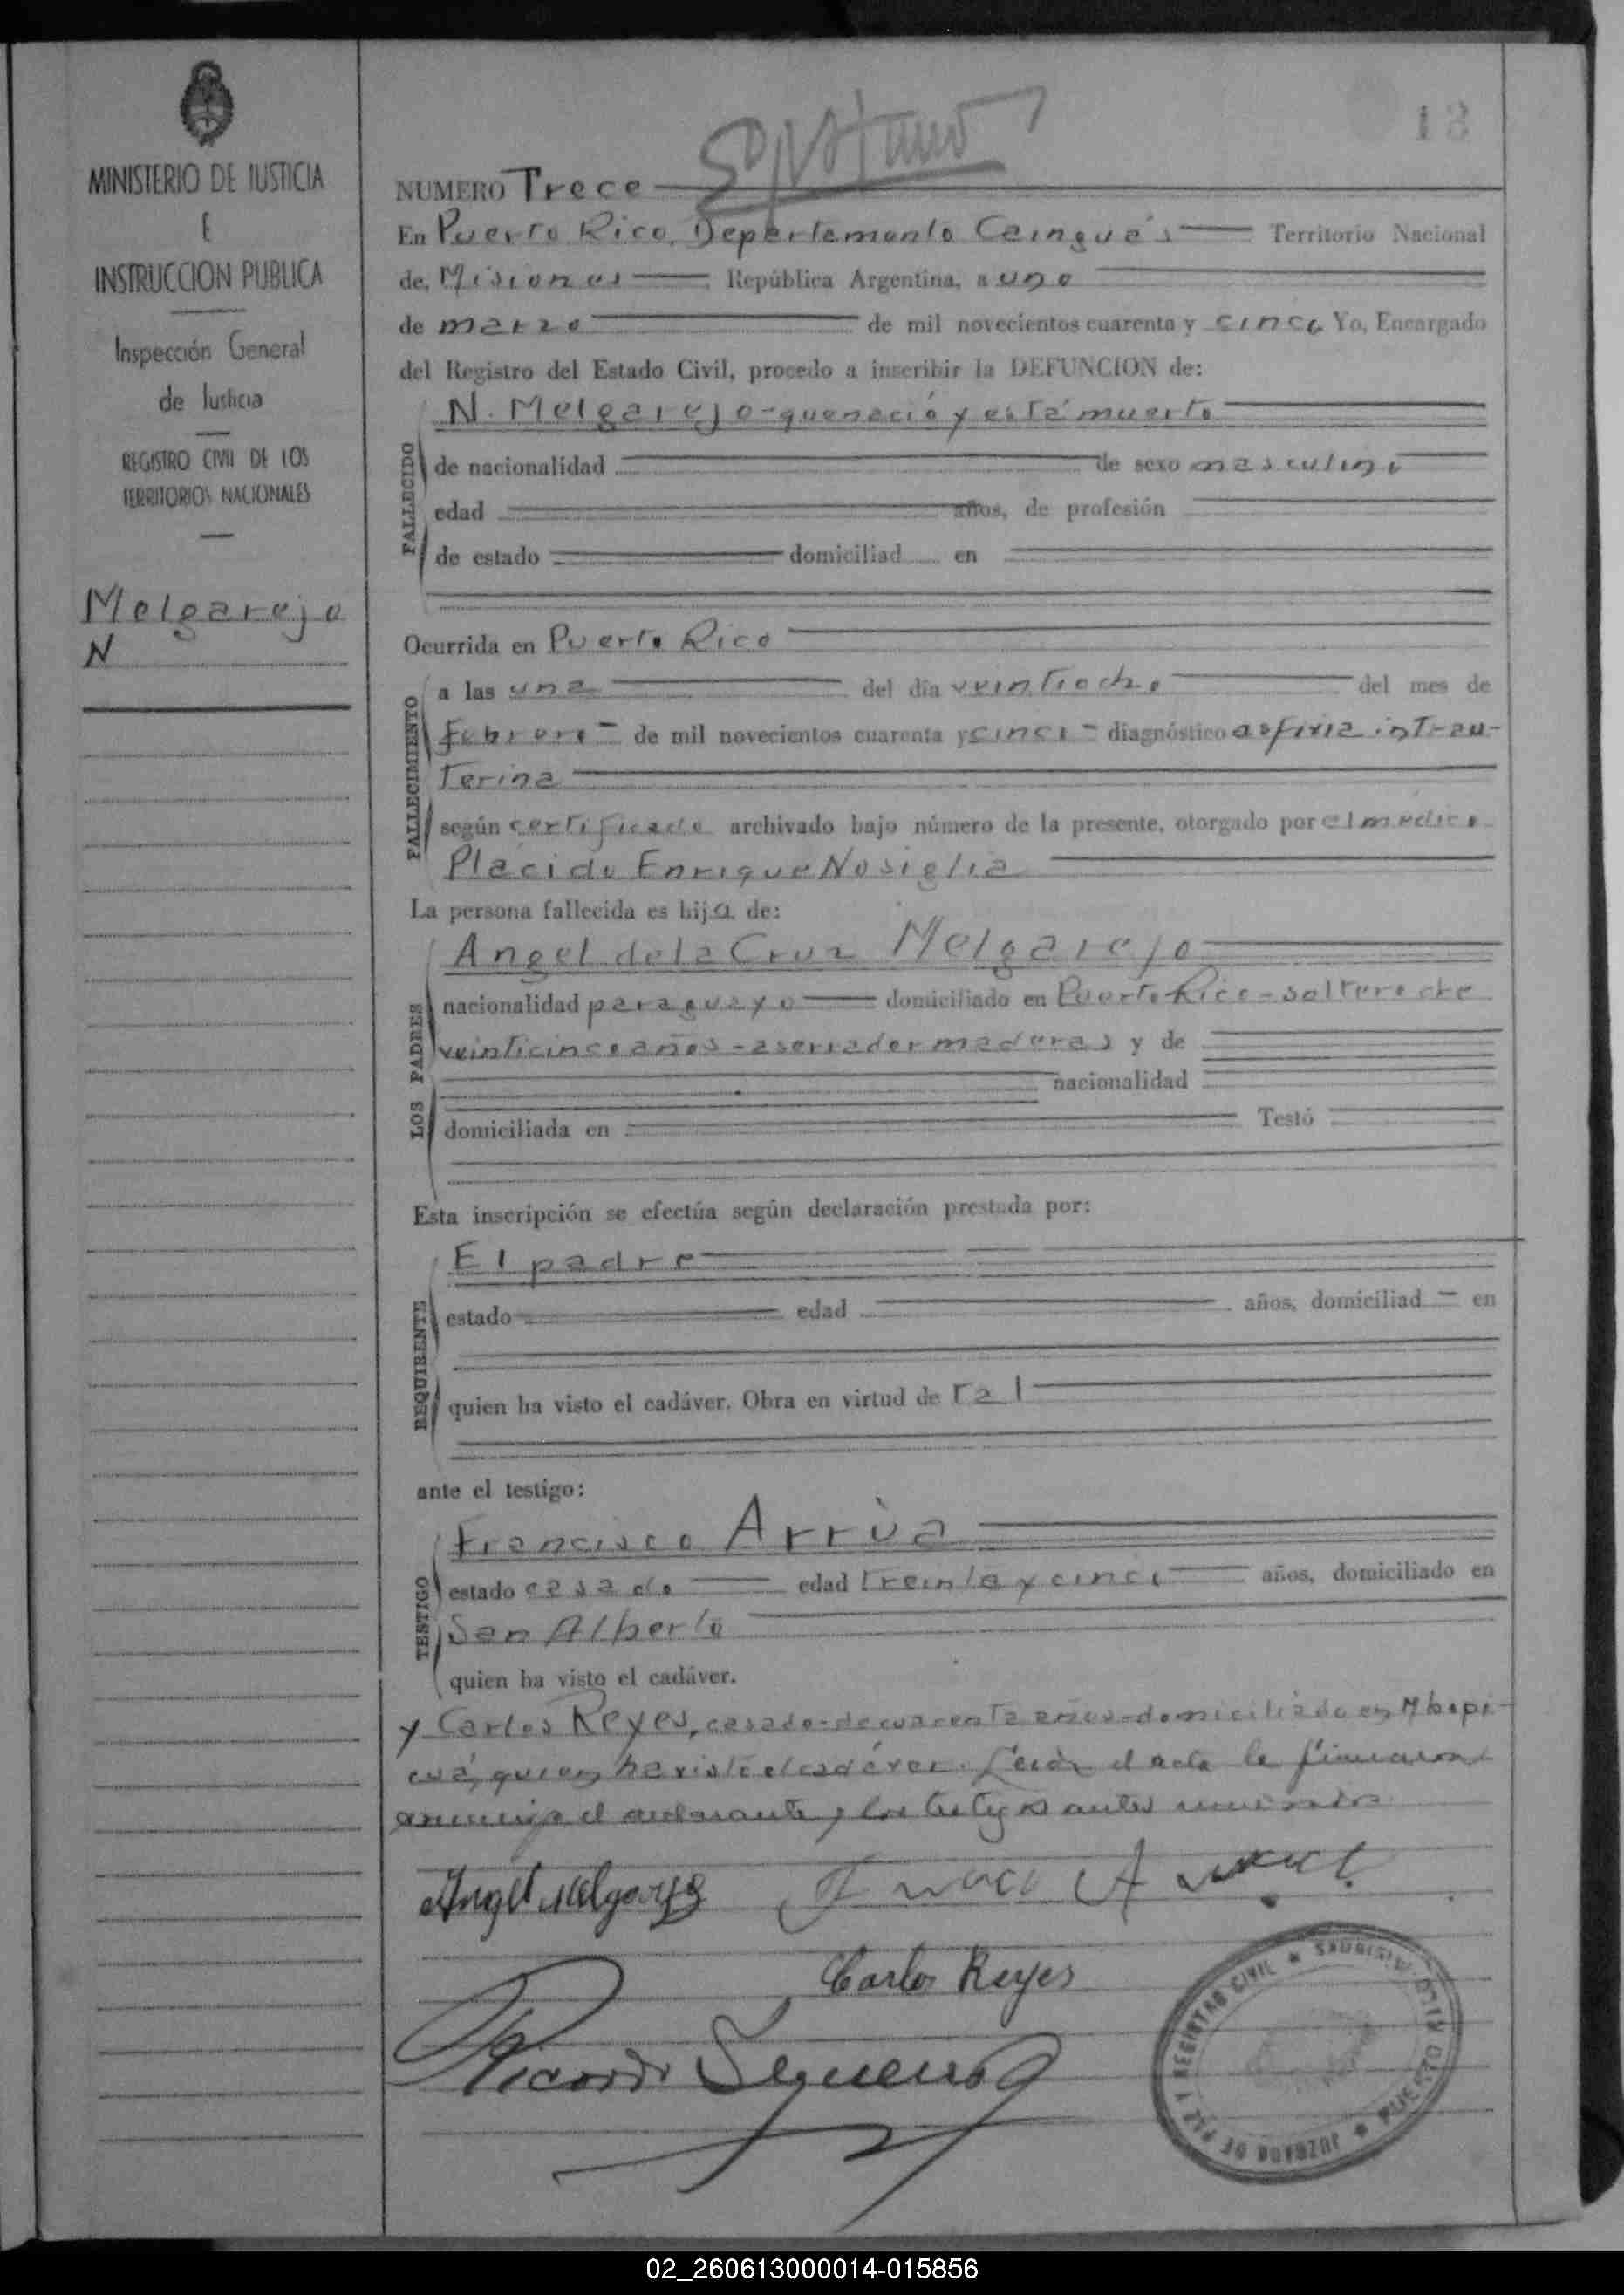 13
MINISTERIO DE JUSTICIA
E
INSTRUCCION PUBLICA
Inspección General
de Justicia
REGISTRO CIVIL DE LOS
TERRITORIOS NACIONALES
Melgarejo
N
NUMERO Trece
En Puerto Rico, Departamento Cainguás Territorio Nacional
de, Misiones República Argentina, a uno
de marzo de mil novecientos cuarenta y cinco Yo, Encargado
del Registro del Estado Civil, procedo a inscribir la DEFUNCION de:
N. Melgarejo - que nació y está muerto
FALLECIDO
de nacionalidad de sexo masculino
edad años, de profesión
de estado domiciliad en
Ocurrida en Puerto Rico
FALLECIMIENTO
a las una del día veintiocho del mes de
febrero de mil novecientos cuarenta y cinco - diagnóstico asfixia intrau-
terina
según certificado archivado bajo número de la presente, otorgado por el médico
Placido Enrique Nosiglia
La persona fallecida es hija de:
LOS PADRES
Angel de la Cruz Melgarejo
nacionalidad paraguayo domiciliado en Puerto Rico - soltero de
veinticinco años - aserrador maderas y de
nacionalidad
domiciliada en Testó
Esta inscripción se efectúa según declaración prestada por:
REQUIRENTE
El padre
estado edad años, domiciliad en
quien ha visto el cadáver. Obra en virtud de tal
ante el testigo:
TESTIGO
Francisco Arrùa
estado casado edad treinta y cinco años, domiciliado en
San Alberto
quien ha visto el cadáver.
y Carlos Reyes, casado - de cuarenta años - domiciliado en Mbopi-
cuá, quien ha visto el cadáver. Leída el acta la firmaron
conmigo el declarante y los testigos antes
Angel Melgarejo
Carlos Reyes
Ricardo Sequeira
JUZGADO DE PAZ Y REGISTRO CIVIL ★ PUERTO RICO - MISIONES ★
02_260613000014-015856